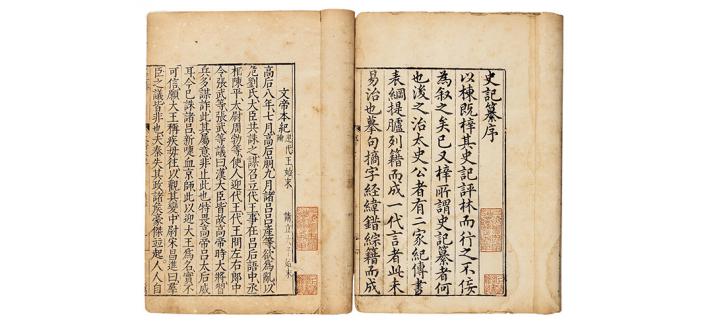 史記纂序
以棟既梓其史記評林而行之不佞
為叙之矣已又梓所謂史記纂者何
也後之治太史公者有二家紀傳書
表綱提臚列籍而成一代言者此未
易治也摹句摘字經緯錯綜籍而成
文帝本紀
高后八年七月高后崩九月諸呂呂產等欲為亂以
危劉氏大臣共誅之謀召立代王事在呂后語中丞
相陳平太尉周勃等使人迎代王代王問左右郎中
令張武等張武等議曰漢大臣皆故高帝時大將習
兵多謀詐此其屬意非止此也特畏高帝呂太后威
耳今已誅諸呂新喋血京師此以迎大王為名實不
可信願大王稱疾毋往以觀其變中尉宋昌進曰羣
臣之議皆非也夫秦失其政諸侯豪傑並起人人自